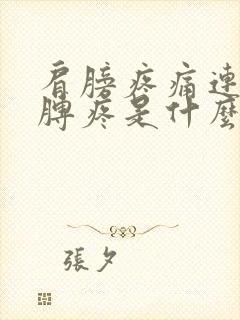 肩膀疼痛連
脾疼是什麼
張夕